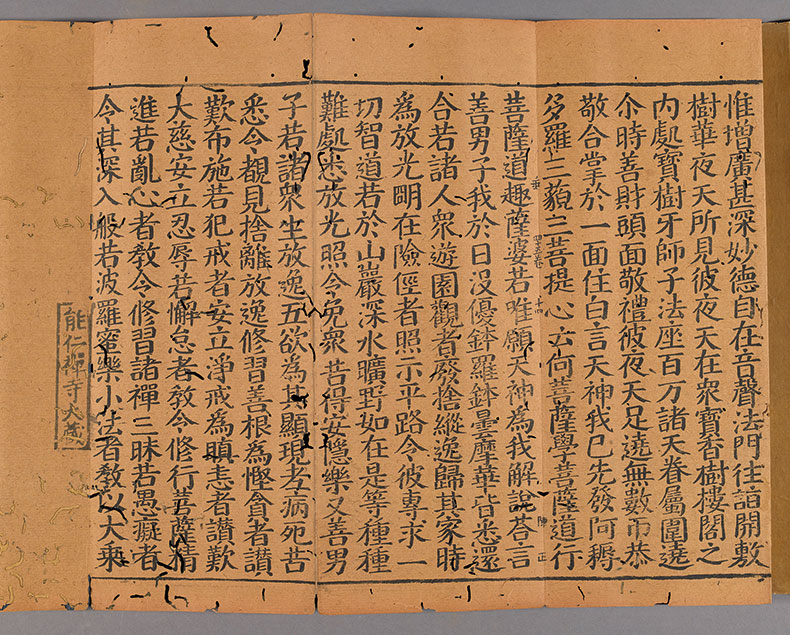 惟增廣甚深妙德自在音聲法門往詣開敷
樹華夜天所見彼夜天在衆寶香樹樓閣之
内處寶樹牙師子法座百万諸天眷屬圍遶
尒時善財頭面敬禮彼夜天足遶無數帀恭
敬合掌於一面住白言天神我已先發阿耨
多羅三藐三菩提心云何菩薩學菩薩道行
菩薩道趣薩婆若唯願天神為我解說荅言
善男子我於日没優鉢羅鉢曇摩華皆悉還
合若諸人衆遊園觀者廢捨縱逸歸其家時
為放光明在險俓者照示平路令彼專求一
切智道若於山巖深水曠野如在是等種種
難處悉放光照令免衆苦得安隱樂又善男
子若諸衆生放逸五欲為其顯現老病死苦
悉令覩見捨離放逸修習善根為慳貪者讃
歎布施若犯戒者安立淨戒為瞋恚者讃歎
大慈安立忍辱若懈怠者教令修行菩薩精
進若亂心者教令修習諸禪三昧若愚癡者
令其深入般若波羅蜜樂小法者教以大乗
能仁禪寺大藏